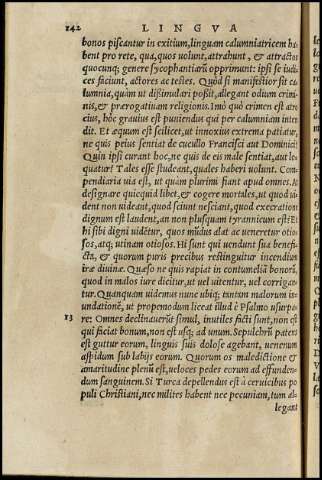 142 LINGVA
bonos piscantur in exitium, linguam calumniatricem ha-
bent pro rete, qua, quos uolunt, attrahunt, & attractos
quocunq; genere sycophantiarũ opprimunt: ipsi se iudi-
ces faciunt, actores ac testes. Quòd si manifestior sit ca-
lumnia, quàm ut dissimulari possit, allegant odium crimi-
nis, & prærogatiuam religionis. Imò quò crimen est atro
cius, hôc grauius est puniendus qui per calumniam inten
dit. Et æquum est scilicet, ut innoxius extrema patiatur,
ne quis peius sentiat de cucullo Francisci aut Dominici?
Quin ipsi curant hoc, ne quis de eis male sentiat, aut lo-
quatur? Tales esse studeant, quales haberi uolunt. Com-
pendiaria uia est, ut quàm plurimi fiant apud omnes. At
designare quicquid libet, & cogere mortales, ut quod ui-
dent non uideant, quod sciunt nesciant, quod execratione
dignum est laudent, an non plusquam tyrannicum est? Et
hi sibi digni uidẽtur, quos mũdus alat ac ueneretur otio-
sos, atq; utinam otiosos. Hi sunt qui uendunt sua benefi-
cta, & quorum puris precibus restinguitur incendium
iræ diuinæ. Quæso ne quis rapiat in contumeliã bonorũ,
quod in malos iure dicitur, ut uel uitentur, uel corrigan-
tur. Quanquam uidemus nunc ubiq; tantam malorum in-
undationẽ, ut propemodum liceat illud è Psalmo usurpa-
13 re: Omnes declinauerũt simul, inutiles facti sunt, non est
qui faciat bonum, non est usq; ad unum. Sepulchrũ patens
est guttur eorum, linguis suis dolose agebant, uenenum
aspidum sub labijs eorum. Quorum os maledictione &
amaritudine plenũ est, ueloces pedes eorum ad effunden-
dum sanguinem. Si Turca depellendus est à ceruicibus po
puli Christiani, nec milites habent nec pecuniam, tum al-
legant